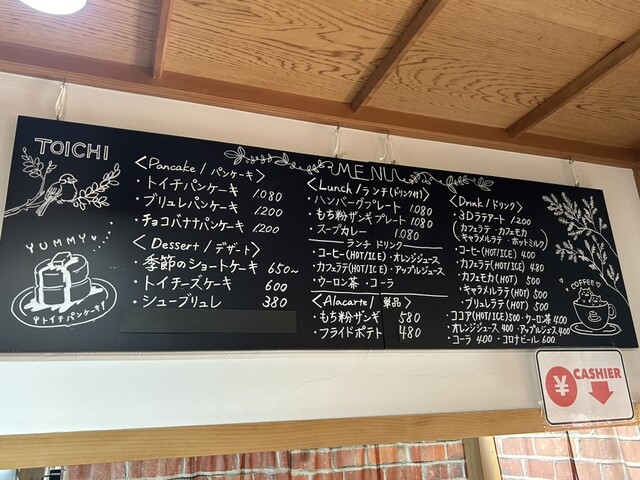 TOICHI
YUMMY
トイチパンケーキ!
MENU
<Pancake / パンケーキ>
・トイチパンケーキ 1080
・ブリュレパンケーキ 1200
・チョコバナナパンケーキ 1200
<Dessert / デザート>
・季節のショートケーキ 650~
・トイチーズケーキ 600
・シューブリュレ 380
<Lunch / ランチ(ドリンク付)>
・ハンバーグプレート 1080
・もち粉ザンギプレート 1080
・スープカレー 1080
ランチ ドリンク
・コーヒー(HOT/ICE)・オレンジジュース
・カフェラテ(HOT/ICE)・アップルジュース
・ウーロン茶・コーラ
<Alacarte / 単品>
・もち粉ザンギ 580
・フライドポテト 480
<Drink / ドリンク>
・3Dラテアート 1200
(カフェラテ・カフェモカ
キャラメルラテ・ホットミルク)
・コーヒー(HOT/ICE) 400
・カフェラテ(HOT/ICE) 480
・カフェモカ(HOT) 500
・キャラメルラテ(HOT) 500
・ブリュレラテ(HOT) 500
・ココア(HOT/ICE)500・ウーロン茶400
・オレンジジュース 400・アップルジュース400
・コーラ 400・コロナビール 600
COFFEE
¥ CASHIER